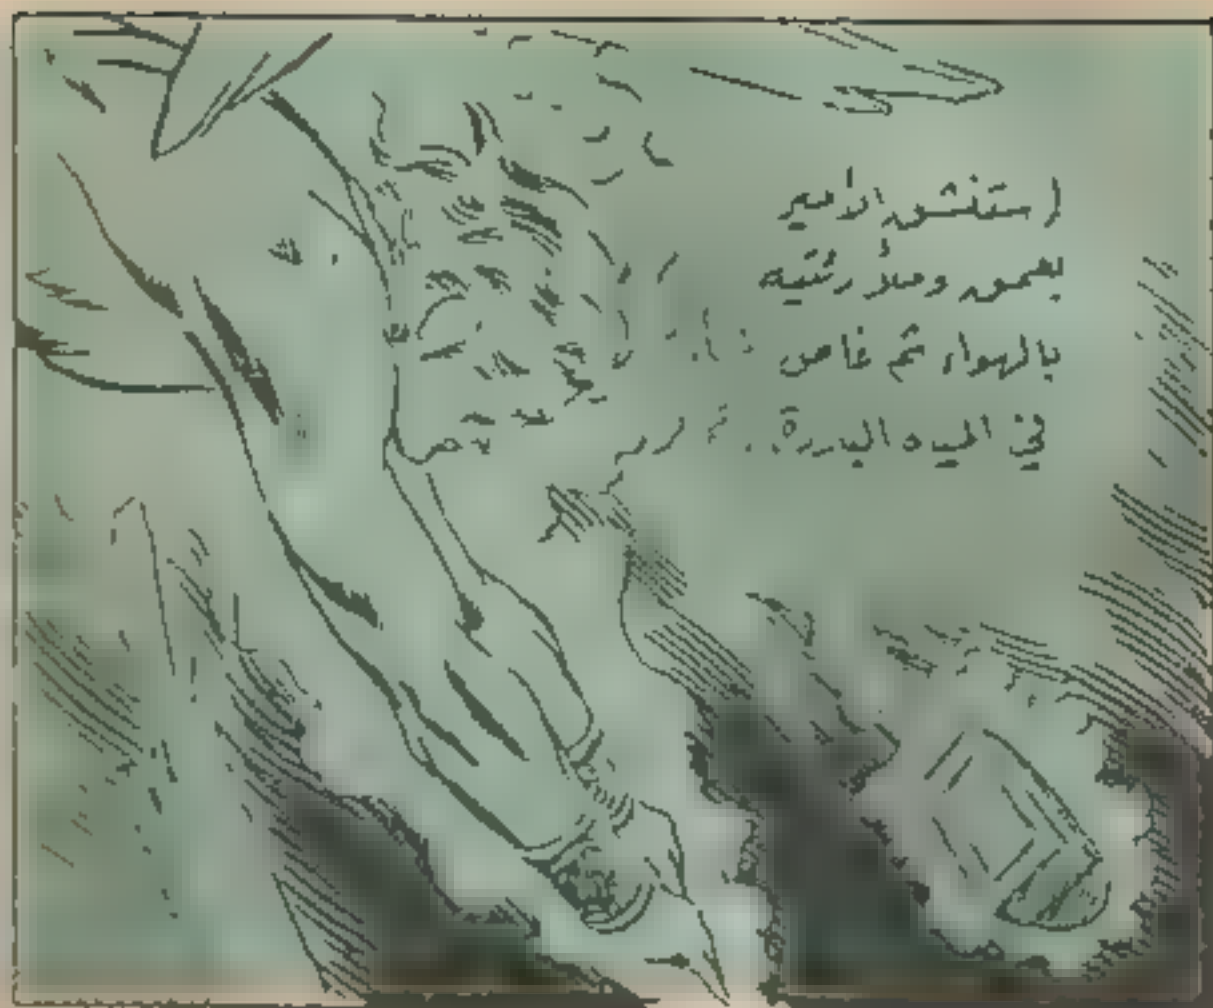 استنشق الأمير
بعمق وملأ رئتيه
بالهواء ثم غاص
في المياه الباردة..